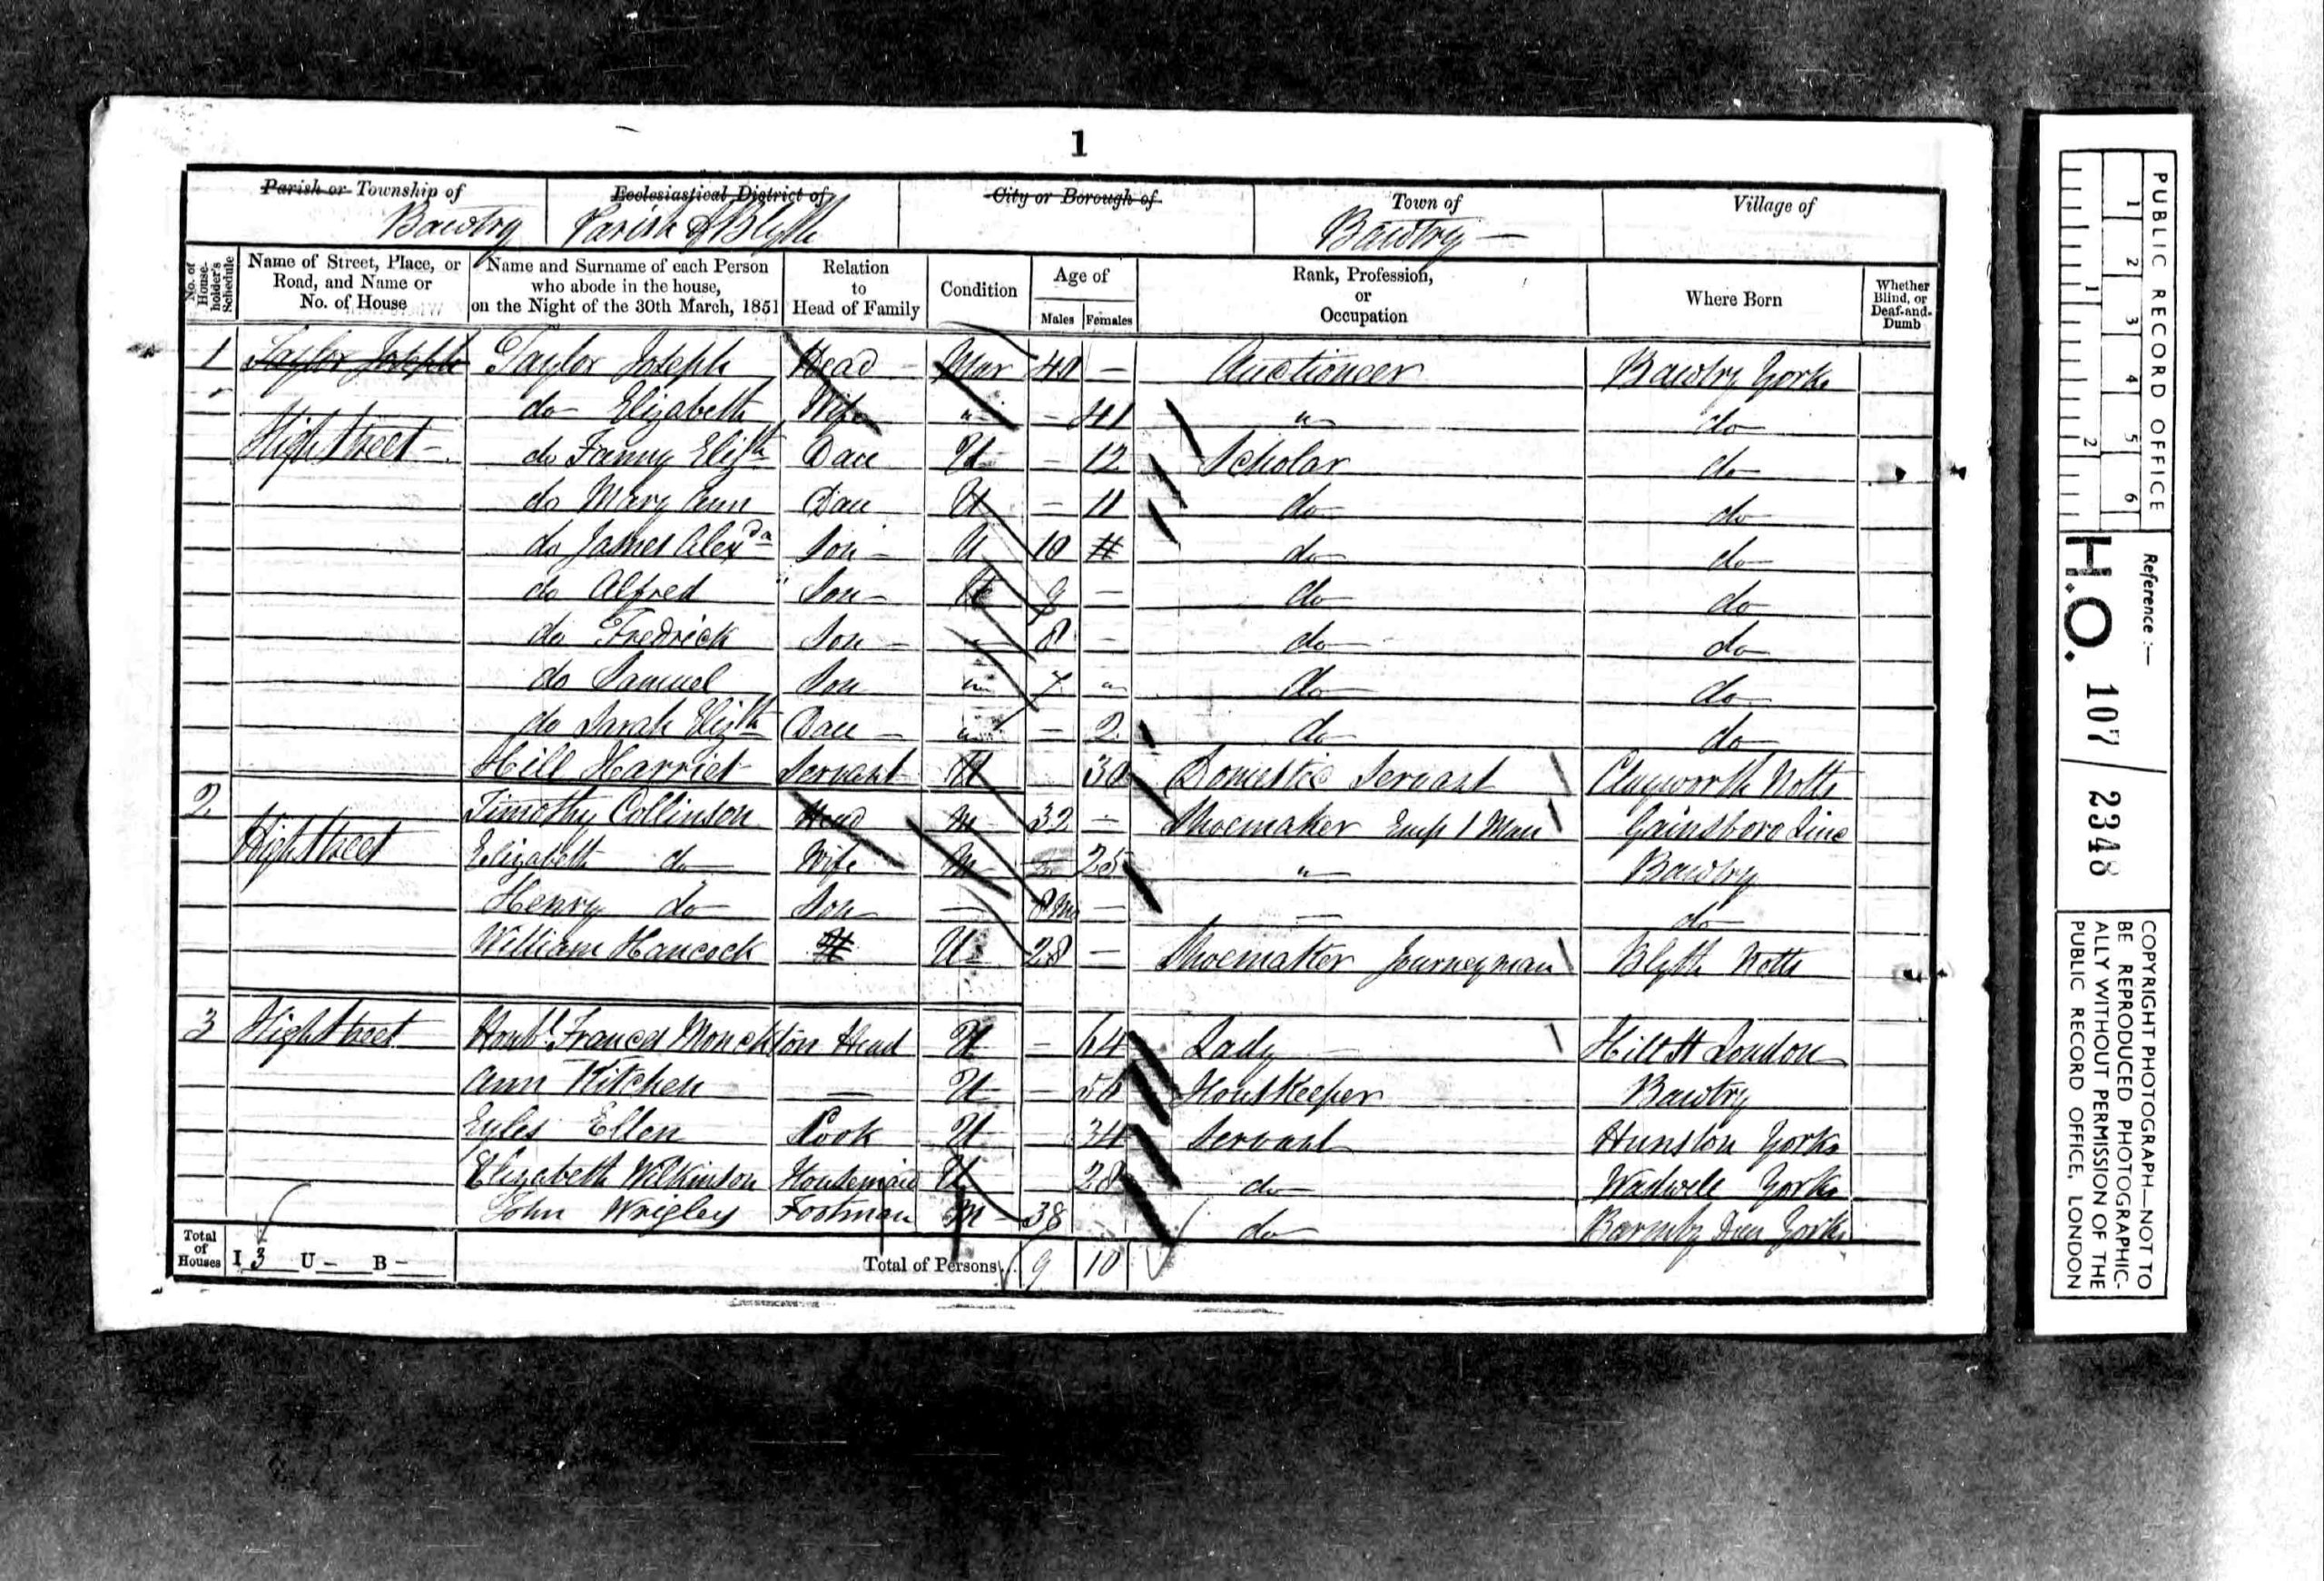 1
Parish or Township of Ecclesiastical District of City or Borough of Town of Village of
Bawtry Parish of Blyth Bawtry
No. of House-holder's Schedule Name of Street, Place, or Road, and Name or No. of House Name and Surname of each Person who abode in the house, on the Night of the 30th March, 1851 Relation to Head of Family Condition Age of Males Females Rank, Profession, or Occupation Where Born Whether Blind, or Deaf-and-Dumb
1 Taylor Joseph Taylor Joseph Head Mar 40 Auctioneer Bawtry Yorks
do Elizabeth Wife " 41 " do
High Street do Fanny Elizth Dau U 12 Scholar do
do Mary Ann Dau U 11 do do
do James Alexda Son U 10 do do
do Alfred Son U 9 do do
do Fredrick Son 8 do do
do Samuel Son " 7 " do do
do Sarah Elizth Dau " 2 do do
Hill Harriet Servant U 30 Domestic Servant Clayworth Notts
2 Timothy Collinson Head M 32 Shoemaker Emp 1 Man Gainsboro Linc
High Street Elizabeth do Wife M 25 " Bawtry
Henry do Son 8 Mo do
William Hancock U 28 Shoemaker Journeyman Blyth Notts
3 High Street Honbl Frances Monckton Head U 64 Lady Hill St London
Ann Kitchen U Housekeeper Bawtry
Eyles Ellen Cook U 34 Servant Yorks
Elizabeth Wilkinson Housemaid U 28 do Yorks
John Wrigley Footman M 38 do Barmby Dun Yorks
Total of Houses I 3 U – B – Total of Persons 9 10
PUBLIC RECORD OFFICE
1 2 3 4 5 6
1 2
Reference :—
H.O. 107 / 2348
COPYRIGHT PHOTOGRAPH—NOT TO
BE REPRODUCED PHOTOGRAPHIC-
ALLY WITHOUT PERMISSION OF THE
PUBLIC RECORD OFFICE, LONDON